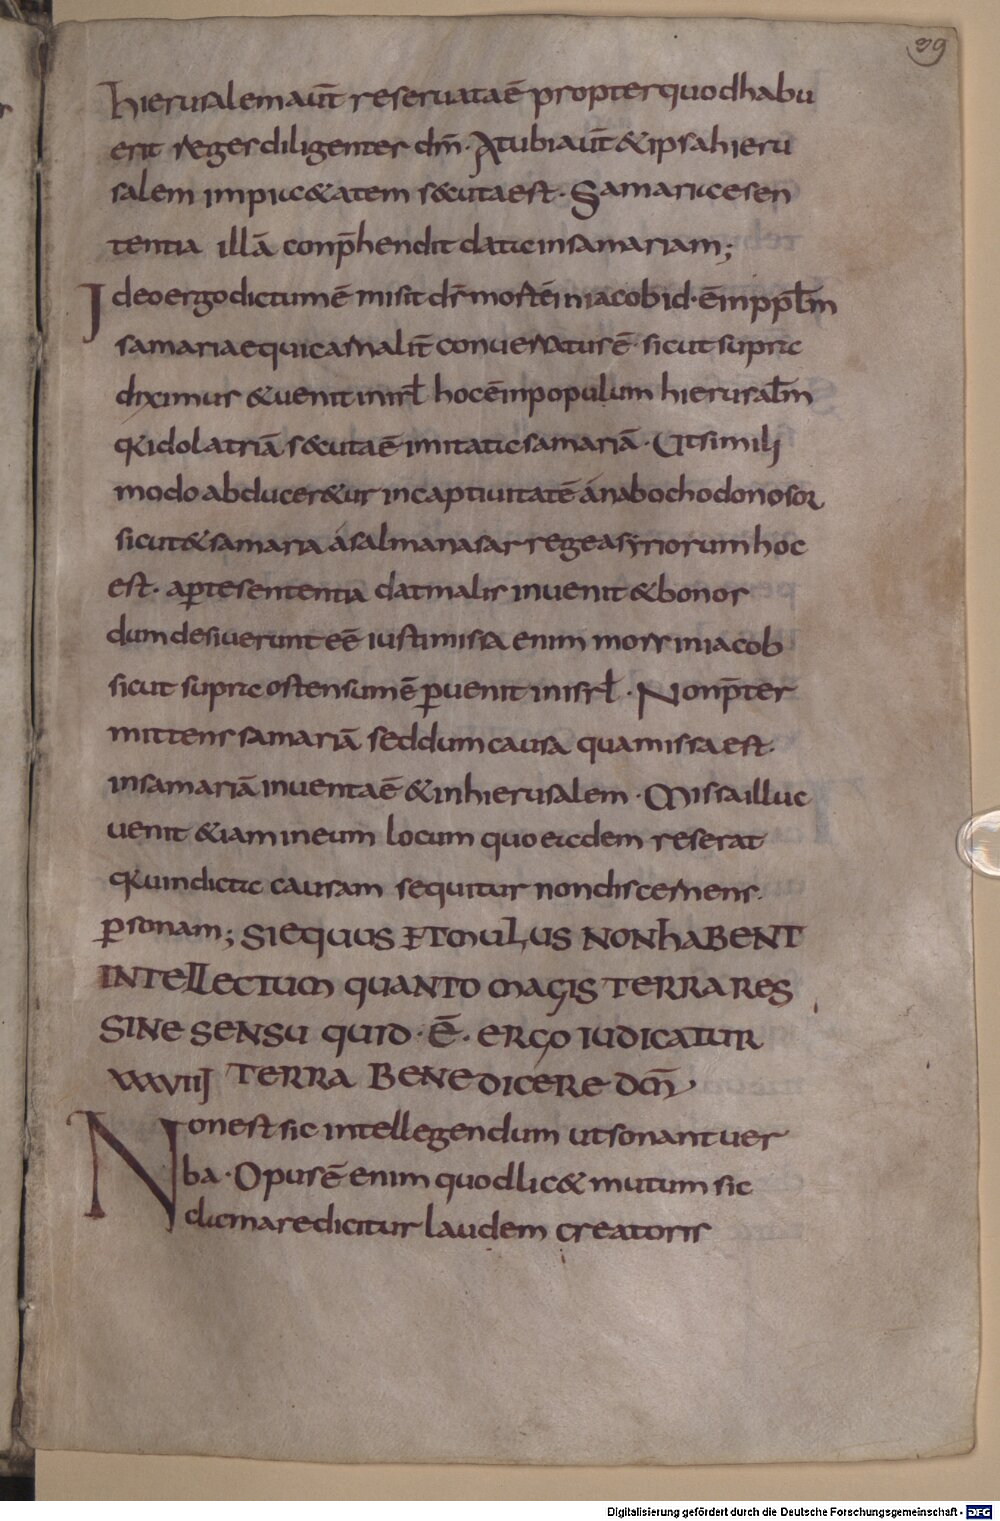 39
hierusalem aut̄ reseruata ē propter quod habu
erit reges diligenter dm̄. At ubi aut̄ & ipsa hieru
salem impiic&atem s&cuta est. Samariccesen
tentia illā conp̄hendit datic in samariam;
Ideo ergo dictum ē misit dn̄s mortē in iacob id. ē in ppl̄m
samariae qui carnalit̄ conuersatus ē sicut supric
diximus & uenit in isrl̄ hoc ē in populum hierusal̄m
q̄ idolatriā s&cuta ē imitatic samariā. Ut simili
modo abducer&ur in captiuitatē á nabochodonosor
sicut & samaria á salmanasar rege asyriorum hoc
est. aperte sententia dat malis inuenit & bonos
dum desiuerunt eē iusti missa enim mors in iacob
sicut supric ostensum ē peruenit in isrl̄. Non p̄ter
mittens samariā sed dum causa qua missa est.
in samariā inuenta ē & in hierusalem. Missa illuc
uenit & iam in eum locum quo eicdem reserat
q̄ uindictic causam sequitur non discernens.
personam; SI EQUUS ET MULUS NON HABENT
INTELLECTUM QUANTO MAGIS TERRA RES
SINE SENSU QUID. Ē. ERGO IUDICATUR
XXXVIIII TERRA BENEDICERE DŌM,
Non est sic intellegendum ut sonant uer
ba. Opus ē enim quod lic& mutum sic
dicmare dicitur laudem creatoris
Digitalisierung gefördert durch die Deutsche Forschungsgemeinschaft - DFG